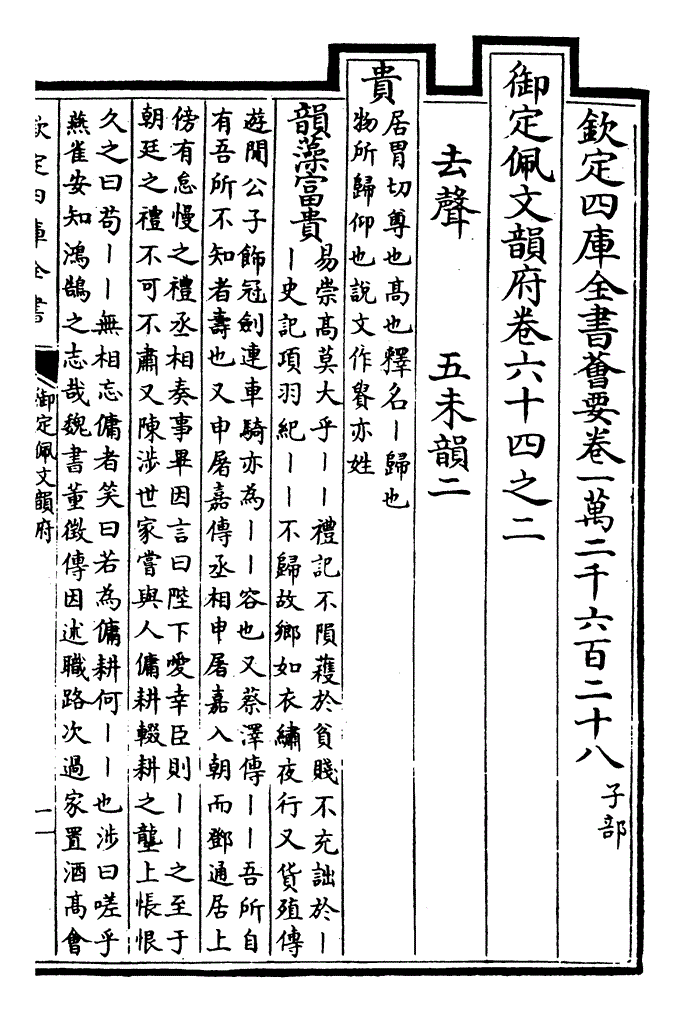 欽定四庫全書薈要卷一萬二千六百二十八 子部
御定佩文韻府卷六十四之二
去聲 五未韻二
貴
居胃切尊也髙也釋名丨歸也
物所歸仰也說文作䝿亦姓
韻藻富貴
易崇髙莫大乎丨丨禮記不隕穫於貧賤不充詘於丨
丨史記項羽紀丨丨不歸故鄉如衣繡夜行又貨殖傳
遊閒公子飾冠劍連車騎亦為丨丨容也又蔡澤傳丨丨吾所自
有吾所不知者壽也又申屠嘉傳丞相申屠嘉入朝而鄧通居上
傍有怠慢之禮丞相奏事畢因言曰陛下愛幸臣則丨丨之至于
朝廷之禮不可不肅又陳涉世家嘗與人傭耕輟耕之壟上悵恨
久之曰苟丨丨無相忘傭者笑曰若為傭耕何丨丨也涉曰嗟乎
燕雀安知鴻鵠之志哉魏書董徵傳因述職路次過家置酒髙會
欽定四庫全書
御定佩文韻府
一